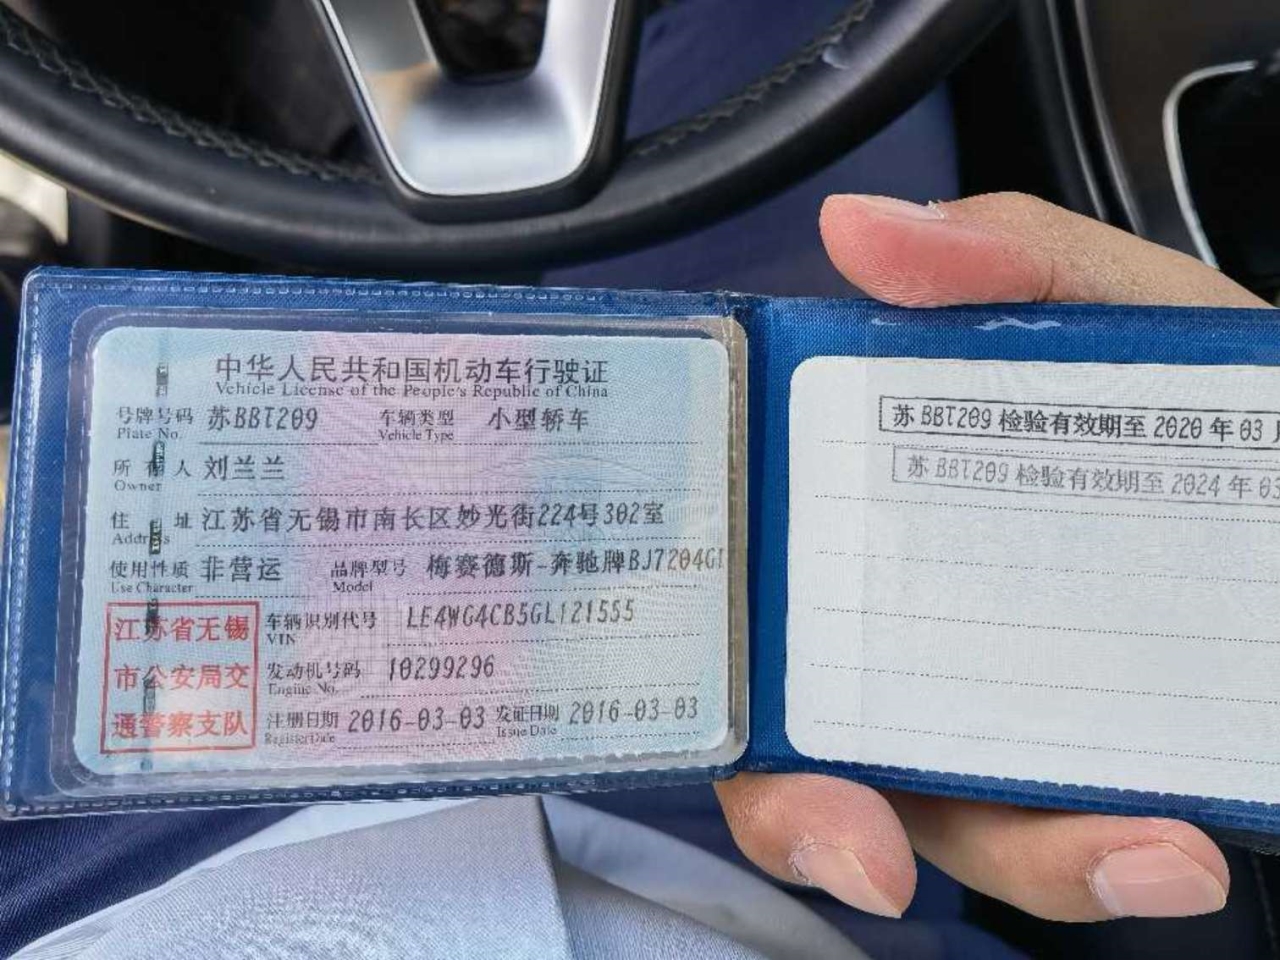 中华人民共和国机动车行驶证
Vehicle License of the People's Republic of China
号牌号码 苏BBT209 车辆类型 小型轿车
Plate No. Vehicle Type
所有人 刘兰兰
Owner
住址 江苏省无锡市南长区妙光街224号302室
Address
使用性质 非营运 品牌型号 梅赛德斯-奔驰牌BJ7204G
Use Character Model
江苏省无锡
市公安局交
通警察支队
车辆识别代号 LE4WG4CB5GL121555
VIN
发动机号码 10299296
Engine No.
注册日期 2016-03-03 发证日期 2016-03-03
Register Date Issue Date
苏BBT209检验有效期至2020年03月
苏BBT209检验有效期至2024年03